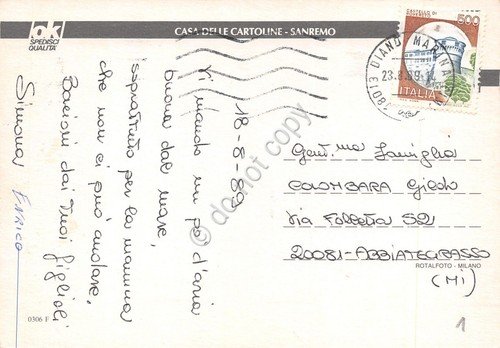 ok
SPEDISCI
QUALITA'
CASA DELLE CARTOLINE - SANREMO
500
ITALIA
18013 DIANO MARINA
23.8.89
18-8-89
Vi mando un po' d'aria
buona dal mare,
soprattutto per la mamma
che non ci può andare.
Bacioni dai tuoi figlioli
Simona
ENRICO
Gent.ma Famiglia
COLOMBARA
Via Folletta 52
20081-ABBIATEGRASSO
(MI)
ROTALFOTO - MILANO
0306 F
1
do not copy